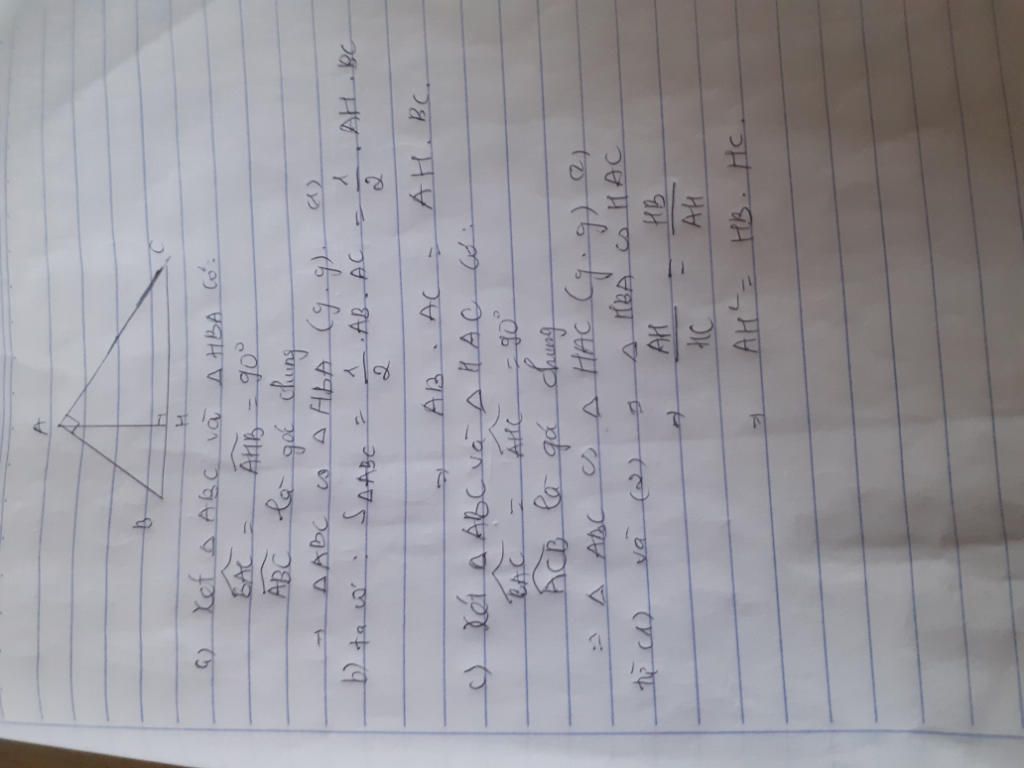 A
B
H
C
a) Xét △ABC và △HBA có:
$\widehat{BAC} = \widehat{AHB} = 90°$
$\widehat{ABC}$ là góc chung
⇒ △ABC ∽ △HBA (g.g). (1)
b) ta có: S△ABC = $\frac{1}{2}$.AB.AC = $\frac{1}{2}$.AH.BC
⇒ AB.AC = AH.BC.
c) Xét △ABC và △HAC có:
$\widehat{BAC} = \widehat{AHC} = 90°$
$\widehat{ACB}$ là góc chung
⇒ △ABC ∽ △HAC (g.g) (2)
Từ (1) và (2) ⇒ △HBA ∽ △HAC
⇒ $\frac{AH}{HC} = \frac{HB}{AH}$
⇒ AH² = HB.HC.